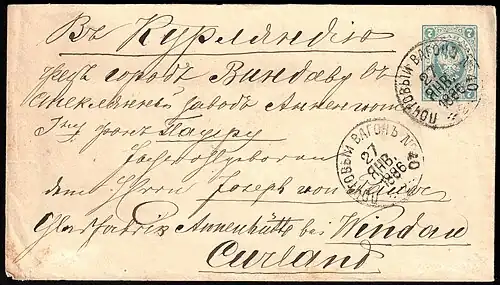 Въ Курляндію
чрезъ городъ Виндаву въ
стеклянный заводъ Анненгютте
Гну фонъ
Hochwohlgeboren
dem Herrn Joseph von
Glasfabrik Annenhütte bei Windau
Curland
7 7
ПОЧТОВЫЙ ВАГОНЪ
27
ЯНВ
1886
ПОЧТОВЫЙ ВАГОНЪ
27
ЯНВ
1886